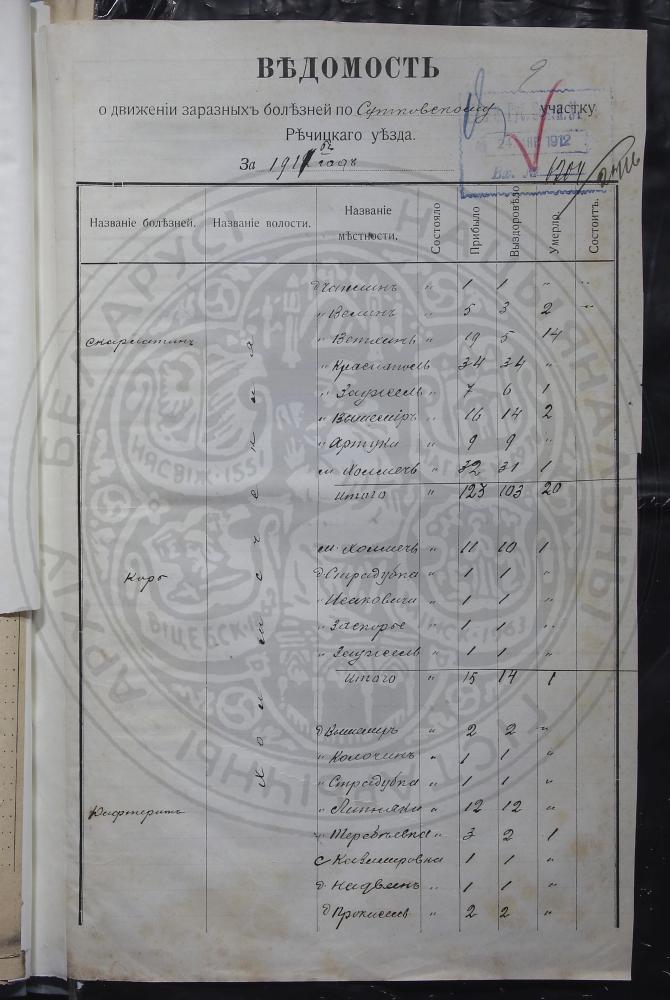 9
ВѢДОМОСТЬ
о движеніи заразныхъ болѣзней по Сутковскому участку
Рѣчицкаго уѣзда.
За 1911 годъ
24 1912
Вх. № 1204
Названіе болѣзней. Названіе волости. Названіе мѣстности. Состояло Прибыло Выздоровѣло Умерло. Состоитъ.
д Чаплинъ " 1 1 " "
" Велинъ " 5 3 2 "
Скарлатинъ " Ветлинъ " 19 5 14
" Красилтоль " 34 34 "
" Заужель " 7 6 1
" Вышеміръ " 16 14 2
" Артуки " 9 9 "
м. Холмечъ " 32 31 1
Итого " 123 103 20
м. Холмечъ " 11 10 1
Корь д. Страдубка " 1 1 "
" Исаковичи " 1 1 "
" Заспорье " 1 1 "
" Заужель " 1 1 "
Итого " 15 14 1
Холмеческая
д Вышемиръ " 2 2 "
" Колочинъ " 1 1 "
" Страдубка " 1 1 "
Дифтеритъ " Липняки " 12 12 "
" Теребѣевка " 3 2 1
с Казимировка 1 1 "
д. Надвинъ " 1 1 "
д Прокисель " 2 2 "